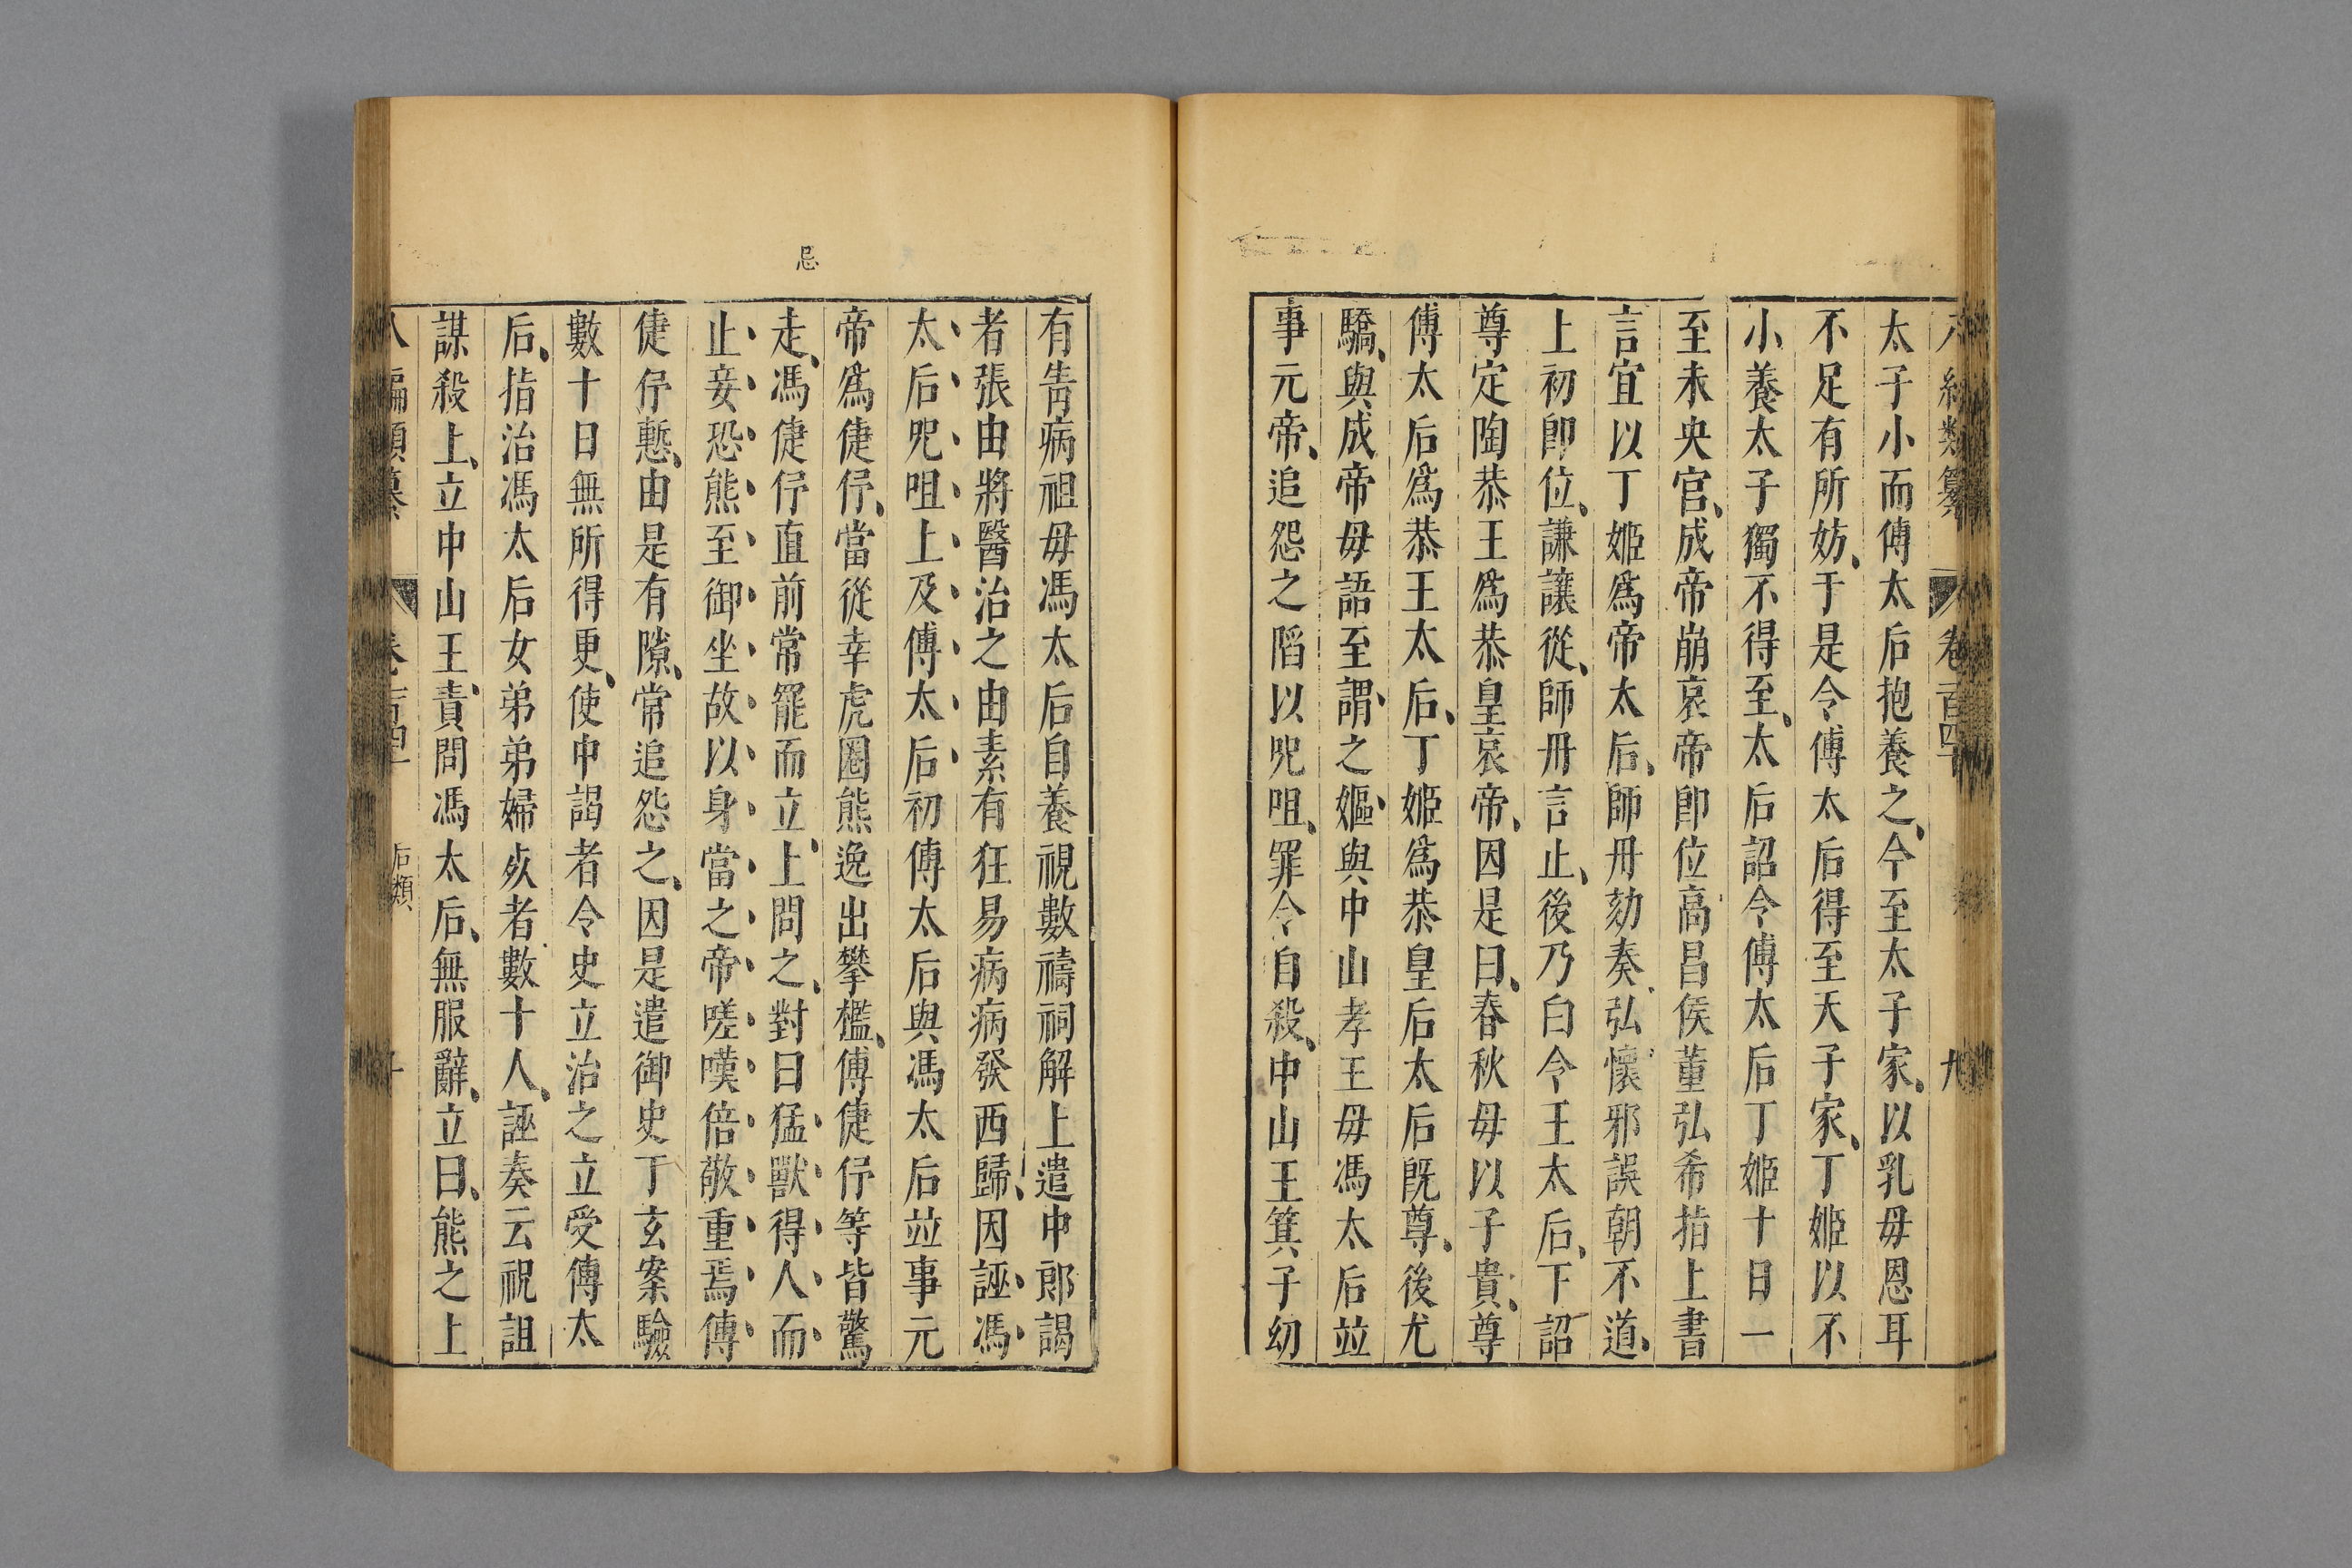 編類纂 卷一百四十 九
太子小而傅太后抱養之今至太子家以乳母恩耳
不足有所妨于是令傅太后得至天子家丁姬以不
小養太子獨不得至太后詔令傅太后丁姬十日一
至未央宮成帝崩哀帝卽位高昌侯董弘希指上書
言宜以丁姬爲帝太后師丹劾奏弘懷邪誤朝不道
上初卽位謙讓從師丹言止後乃白令王太后下詔
尊定陶恭王爲恭皇哀帝因是曰春秋母以子貴尊
傅太后爲恭王太后丁姬爲恭皇后太后旣尊後尤
驕與成帝母語至謂之嫗與中山孝王母馮太后並
事元帝追怨之陷以呪咀罪令自殺中山王箕子幼
忌
有眚病祖母馮太后自養視數禱祠解上遣中郎謁
者張由將醫治之由素有狂易病病發西歸因誣馮
太后呪咀上及傅太后初傅太后與馮太后並事元
帝爲倢伃當從幸虎圈熊逸出攀檻傅倢伃等皆驚
走馮倢伃直前常罷而立上問之對曰猛獸得人而
止妾恐熊至御坐故以身當之帝嗟嘆倍敬重焉傅
倢伃慙由是有隙常追怨之因是遣御史丁玄案驗
數十日無所得更使中謁者令史立治之立受傅太
后指治馮太后女弟弟婦死者數十人誣奏云祝詛
謀殺上立中山王責問馮太后無服辭立曰熊之上
八編類纂 卷一百四十 后類 十